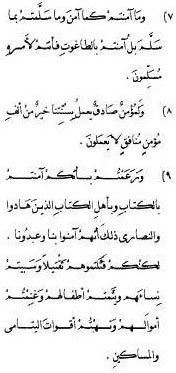 ٧) وما آمنتم كما آمن وما سلمتم بما
سلم بل آمنتم بالطاغوت فأنتم لأمره
مسلمون .
٨) ولمؤمن صادق يعمل بسنتنا خير من ألف
مؤمن منافق لا يعملون .
٩) وزعمتم بأنكم آمنتم
بالكتاب وبأهل الكتاب الذين هادوا
والنصارى ذلك أنهم آمنوا بنا وعبدونا .
لكنكم قتلتموهم تقتيلا وسبيتم
نساءهم ويتمتم أطفالهم وغنمتم
أموالهم ونهبتم أقوات اليتامى
والمساكين .